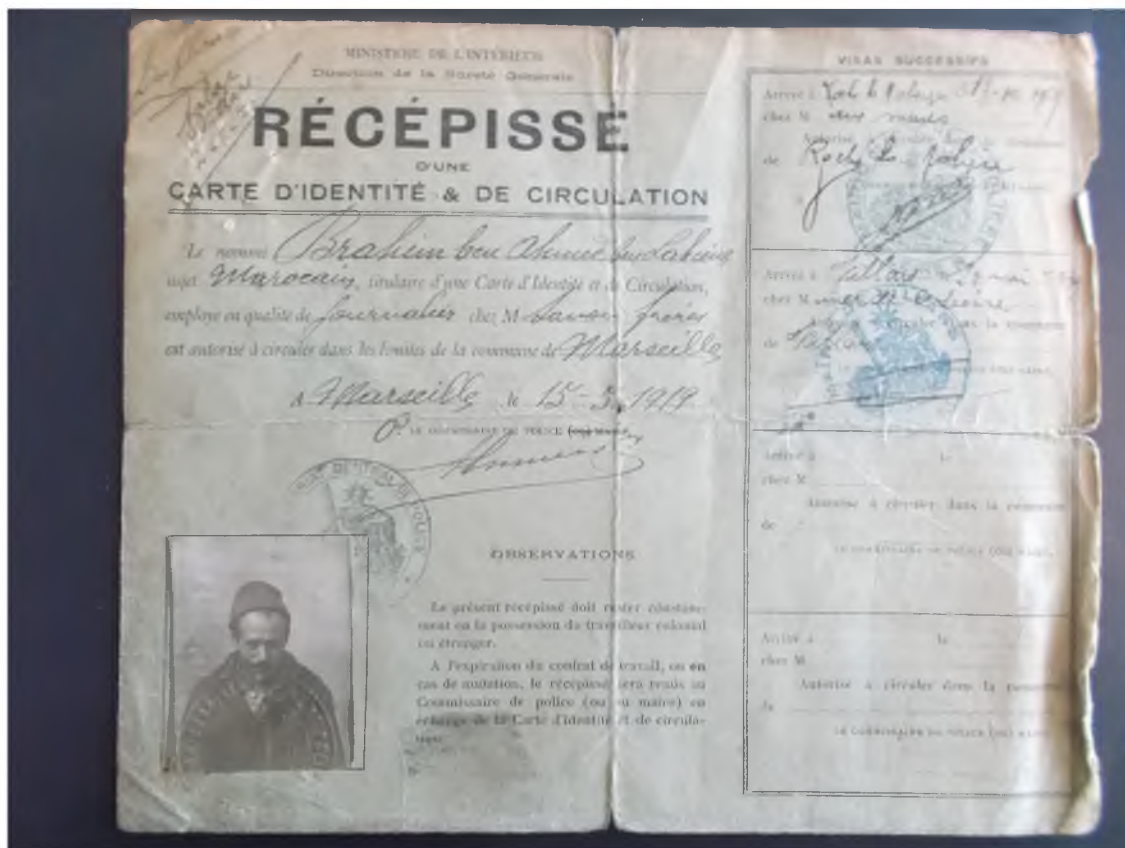 MINISTÈRE DE L'INTÉRIEUR
Direction de la Sûreté Générale
RÉCÉPISSÉ
D'UNE
CARTE D'IDENTITÉ & DE CIRCULATION
Le nommé Brahim ben Ahmed ben Lahcen
sujet Marocain, titulaire d'une Carte d'Identité et de Circulation,
employé en qualité de journalier chez M frères
est autorisé à circuler dans les limites de la commune de Marseille
à Marseille le 15-3-1919
P. LE COMMISSAIRE DE POLICE (OU MAIRE)
CENTRAL DE POLICE
OBSERVATIONS
Le présent récépissé doit rester constam-
ment en la possession du travailleur colonial
ou étranger.
A l'expiration du contrat de travail, ou en
cas de mutation, le récépissé sera remis au
Commissaire de police (ou au maire) en
échange de la Carte d'Identité et de circula-
tion.
VISAS SUCCESSIFS
Arrivé à
chez M aux mines
Autorisé à circuler dans la commune
de Roche la Molière
Arrivé à
chez M
Autorisé à circuler dans la commune
de
LE COMMISSAIRE DE POLICE (OU MAIRE),
Arrivé à le
chez M
Autorisé à circuler dans la commune
de
LE COMMISSAIRE DE POLICE (OU MAIRE),
Arrivé à le
chez M
Autorisé à circuler dans la commune
de
LE COMMISSAIRE DE POLICE (OU MAIRE),